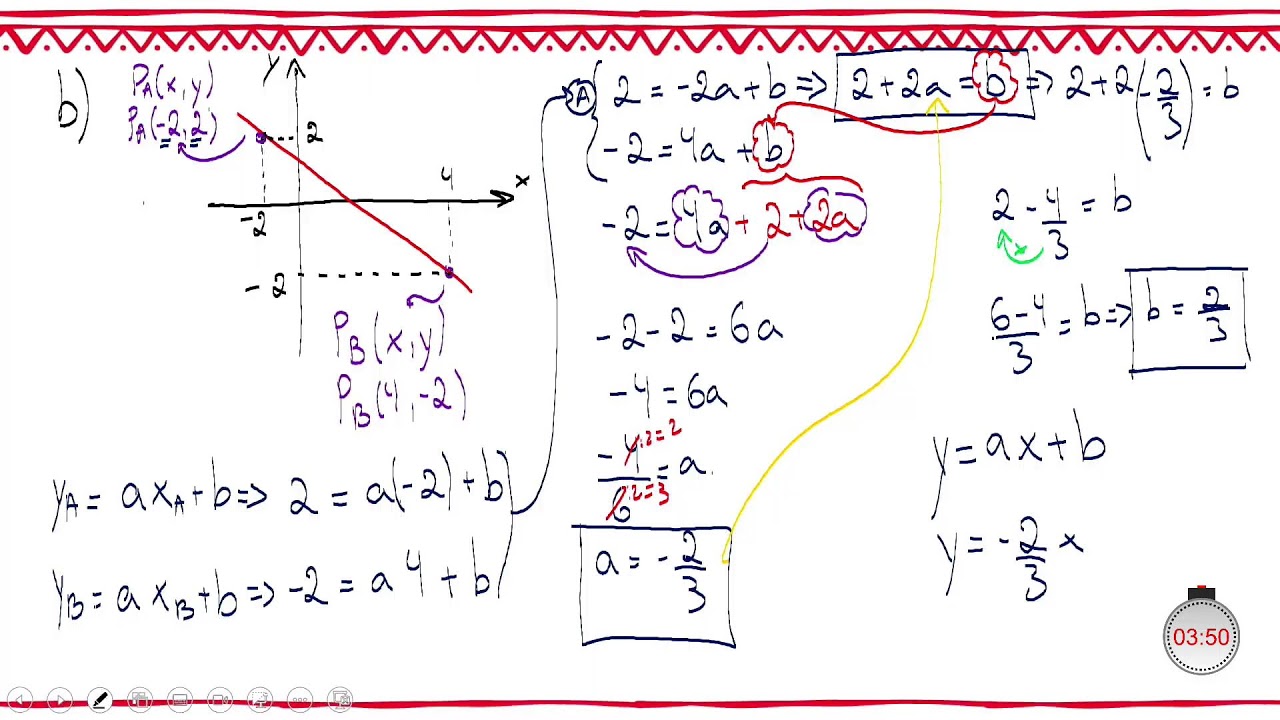 b)
P_A(x, y)
P_A(-2, 2)
y
2
4
x
-2
-2
P_B(x, y)
P_B(4, -2)
y_A = a x_A + b => 2 = a(-2) + b
y_B = a x_B + b => -2 = a 4 + b
A { 2 = -2a + b => 2 + 2a = b => 2 + 2(-2/3) = b
-2 = 4a + b
-2 = 4a + 2 + 2a
-2 - 2 = 6a
-4 = 6a
-4:2=2/6:2=3 = a
a = -2/3
2 - 4/3 = b
x
6-4/3 = b => b = 2/3
y = ax + b
y = -2/3 x
03:50